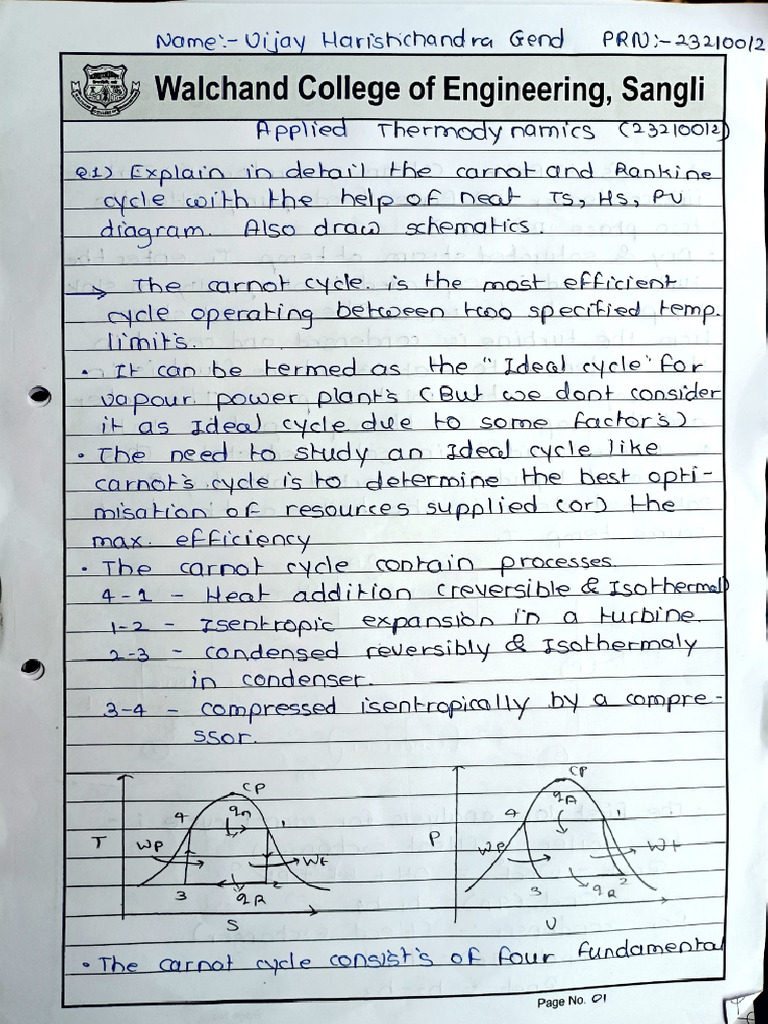 Name:- Vijay Harishchandra Gend PRN:- 23210012
Walchand College of Engineering, Sangli
Applied Thermodynamics (23210012)
Q1) Explain in detail the carnot and Rankine
cycle with the help of neat TS, HS, PV
diagram. Also draw schematics.
→ The carnot cycle. is the most efficient
cycle operating between two specified temp.
limit's.
• It can be termed as the "Ideal cycle" for
vapour power plant's (But we dont consider
it as Ideal cycle due to some factor's)
• The need to study an Ideal cycle like
carnot's cycle is to determine the best opti-
misation of resources supplied (or) the
max. efficiency
• The carnot cycle contain processes.
4-1 - Heat addition (reversible & Isothermal)
1-2 - Isentropic expansion in a turbine.
2-3 - condensed reversibly & Isothermaly
in condenser.
3-4 - compressed isentropically by a compre-
ssor.
CP CP
4 qA 1 4 qA 1
T WP Wt P WP Wt
3 qR 2 3 qR 2
S V
• The carnot cycle consist's of four fundamental
Page No. 01